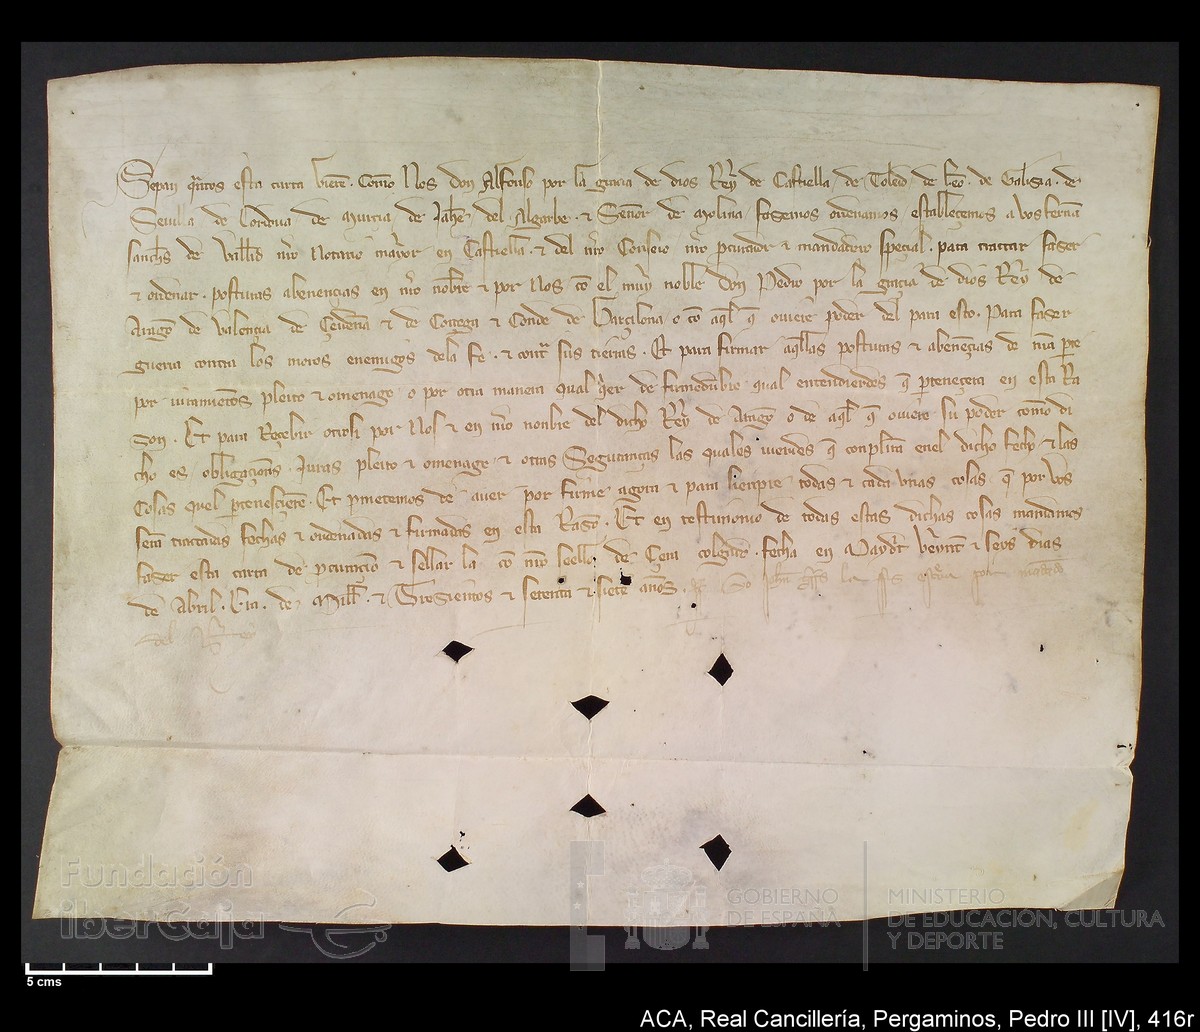 Sepan q̃ntos esta carta vierẽ. Como Nos don Alfonso por la gracia de dios Rey de Castiella de Toledo de Leõ. de Gallizia. de
Seuilla de Cordoua de Murcia de Jahẽ del Algarbe. & Señor de Molina fazemos ordenamos establecemos a vos ferrnã
sanch̃s de Vallid nr̃o Notario mayor en Castiella. & del nr̃o Conseio nr̃o p̃curador & mandadero special. para tractar fazer
& ordenar. posturas abenencias en nr̃o nonbre & por Nos cõ el muy noble Don Pedro por la gracia de dios Rey de
Aragõ de Valencia de Cerdeña & de Corcega & Conde de Barcilona o cõ aq̃l q̃ ouiere poder del para esto. Para fazer
guerra contra los moros enemigos dela fe. & contra sus tierras. Et para firmar aq̃llas posturas & abenẽças de nr̃a p̃te
por iuramentos pleito & omenage o por otra manera qual q̃er de firmedũbre qual entendierdes q̃ p̃teneçera en esta Ra
zon. Et para Recebir otrosi por Nos & en nr̃o nonbre del dicho Rey de Aragõ o de aq̃l q̃ ouiere su poder como di
cho es obligaçiones. Juras pleito & omenage & otras Segurancas las quales vierdes q̃ conplirã enel dicho fecho & las
Cosas quel p̃tenescierẽ. Et p̃metemos de auer por firme agora & para sienpre todas & cada vnas cosas q̃ por vos
serã tractadas fechas & ordenadas & firmadas en esta Razõ. Et en testimonio de todas estas dichas cosas mandamos
fazer esta carta de p̃curaciõ & sellar la cõ nr̃o seello de Cera colgado. fecha en Madrit veynt & seys dias
de Abril. Era. de Mill. & Trezientos & setenta & siete años.
del Rey
Fundación
iberCaja
GOBIERNO
DE ESPAÑA
MINISTERIO
DE EDUCACIÓN, CULTURA
Y DEPORTE
5 cms
ACA, Real Cancillería, Pergaminos, Pedro III [IV], 416r